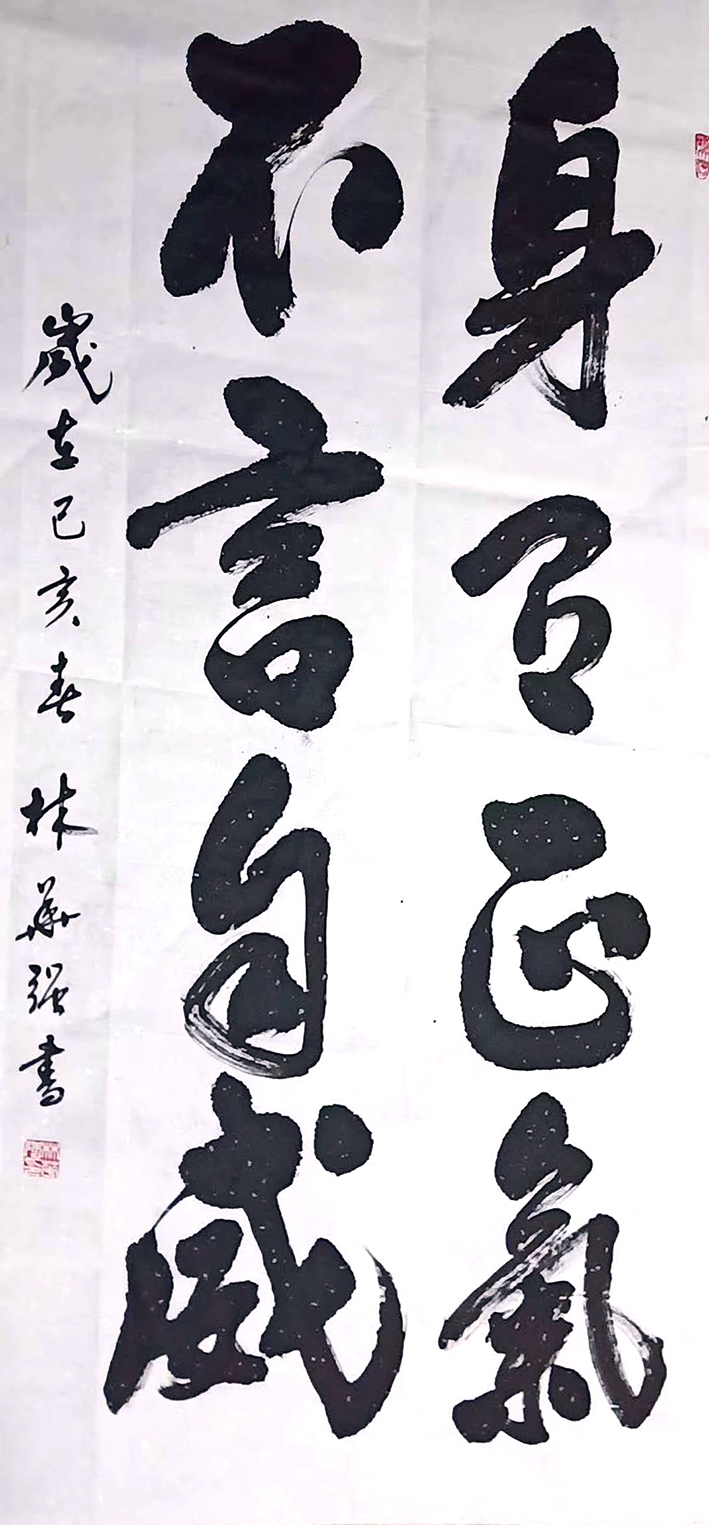 身有正氣
不言自威
歲在己亥春 林華强書